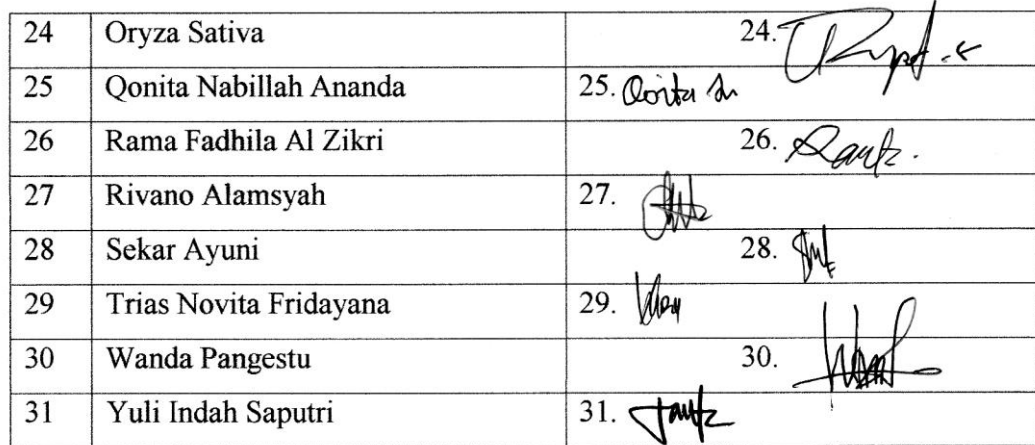 24 Oryza Sativa 24.
25 Qonita Nabillah Ananda 25. Qonita
26 Rama Fadhila Al Zikri 26.
27 Rivano Alamsyah 27.
28 Sekar Ayuni 28.
29 Trias Novita Fridayana 29.
30 Wanda Pangestu 30.
31 Yuli Indah Saputri 31.